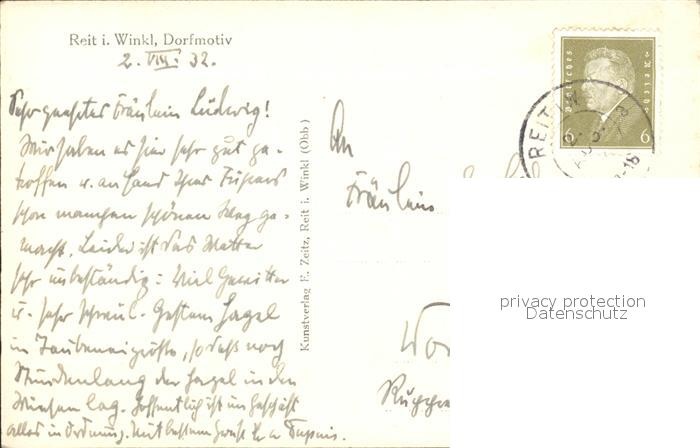 Reit i. Winkl, Dorfmotiv
2. VIII. 32.
Sehr geehrtes Fräulein Ludwig!
Wir haben es hier sehr gut ge-
troffen u. an Hand Ihres Führers
schon manchen schönen Weg ge-
macht. Leider ist das Wetter
sehr unbeständig: Viel Gewitter
u. sehr schwül. Gestern Hagel
in Taubeneigröße, so daß noch
Stundenlang der Hagel in den
Wiesen lag. Hoffentlich ist im Geschäft
alles in Ordnung. Mit bestem Gruß
Kunstverlag E. Zeitz, Reit i. Winkl (Obb)
An
Fräulein
Deutsches Reich
6 6
REIT IM
privacy protection
Datenschutz